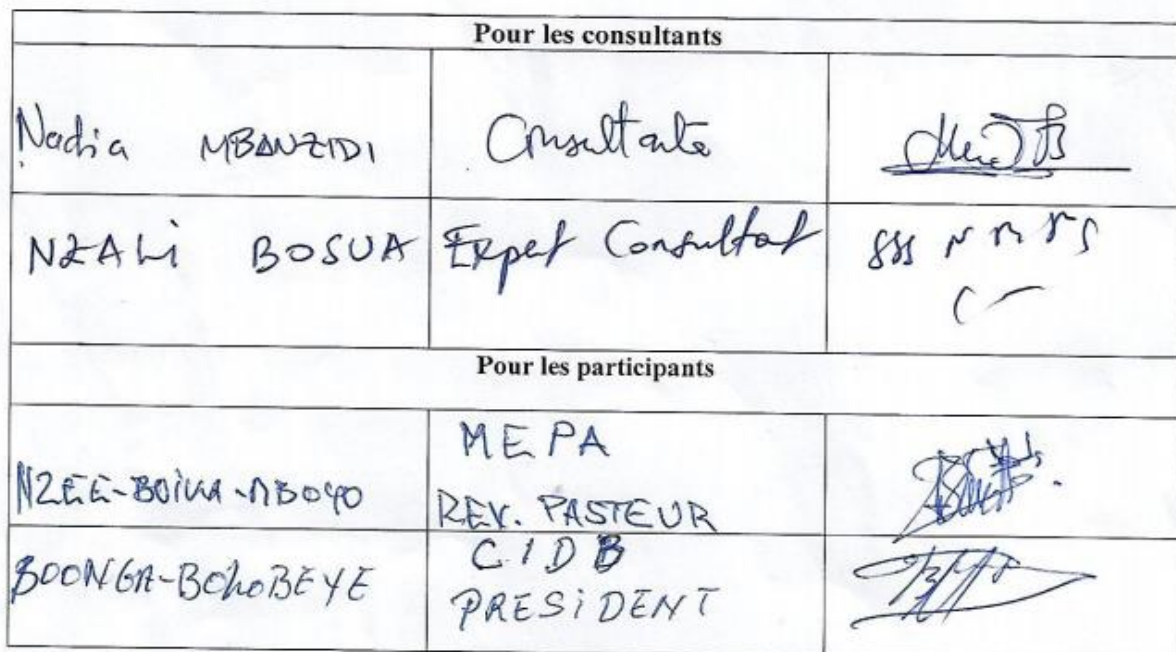 Pour les consultants
Nadia MBANZIDI Consultante
NZALi BOSUA Expert Consultant
Pour les participants
MEPA
NZEE-BOiKA-MBOYO REV. PASTEUR
BOONGA-BOLOBEYE C.I.D.B
PRESiDENT